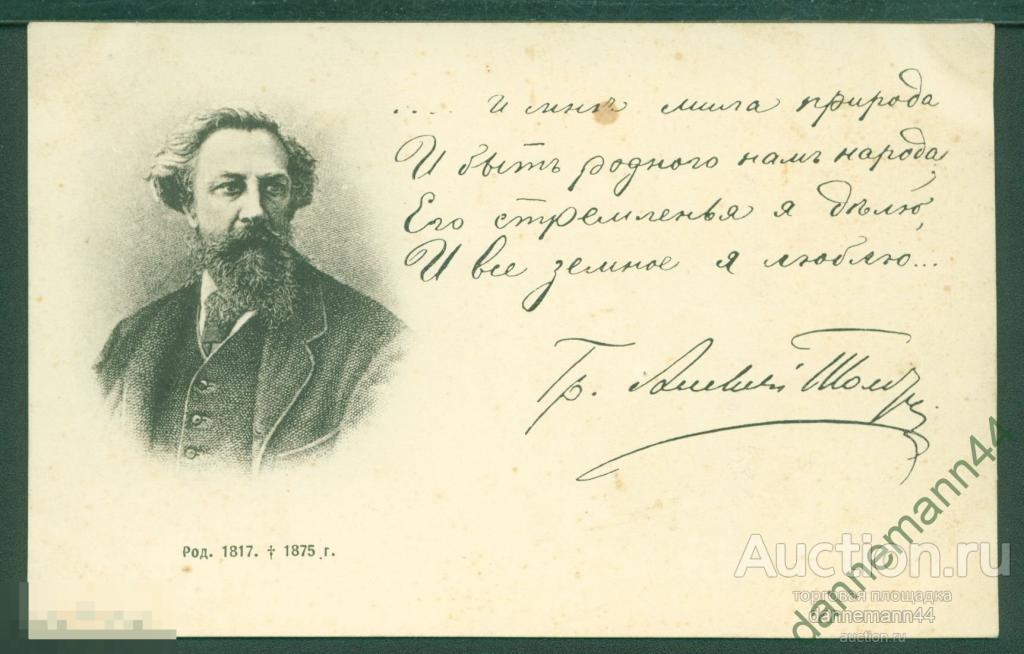 .... и мнѣ мила природа
И бытъ родного намъ народа,
Его стремленья я дѣлю,
И все земное я люблю...
Гр. Алексѣй Толстой
Род. 1817. † 1875 г.
Auction.ru
торговая площадка
dannemann44
auction.ru
dannemann44